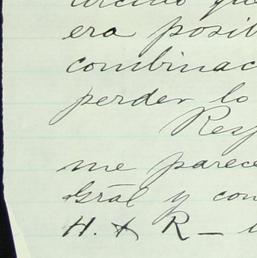 que
era posib
combinac
perder lo
Resp
me parece
Grâl y con
H. & R —